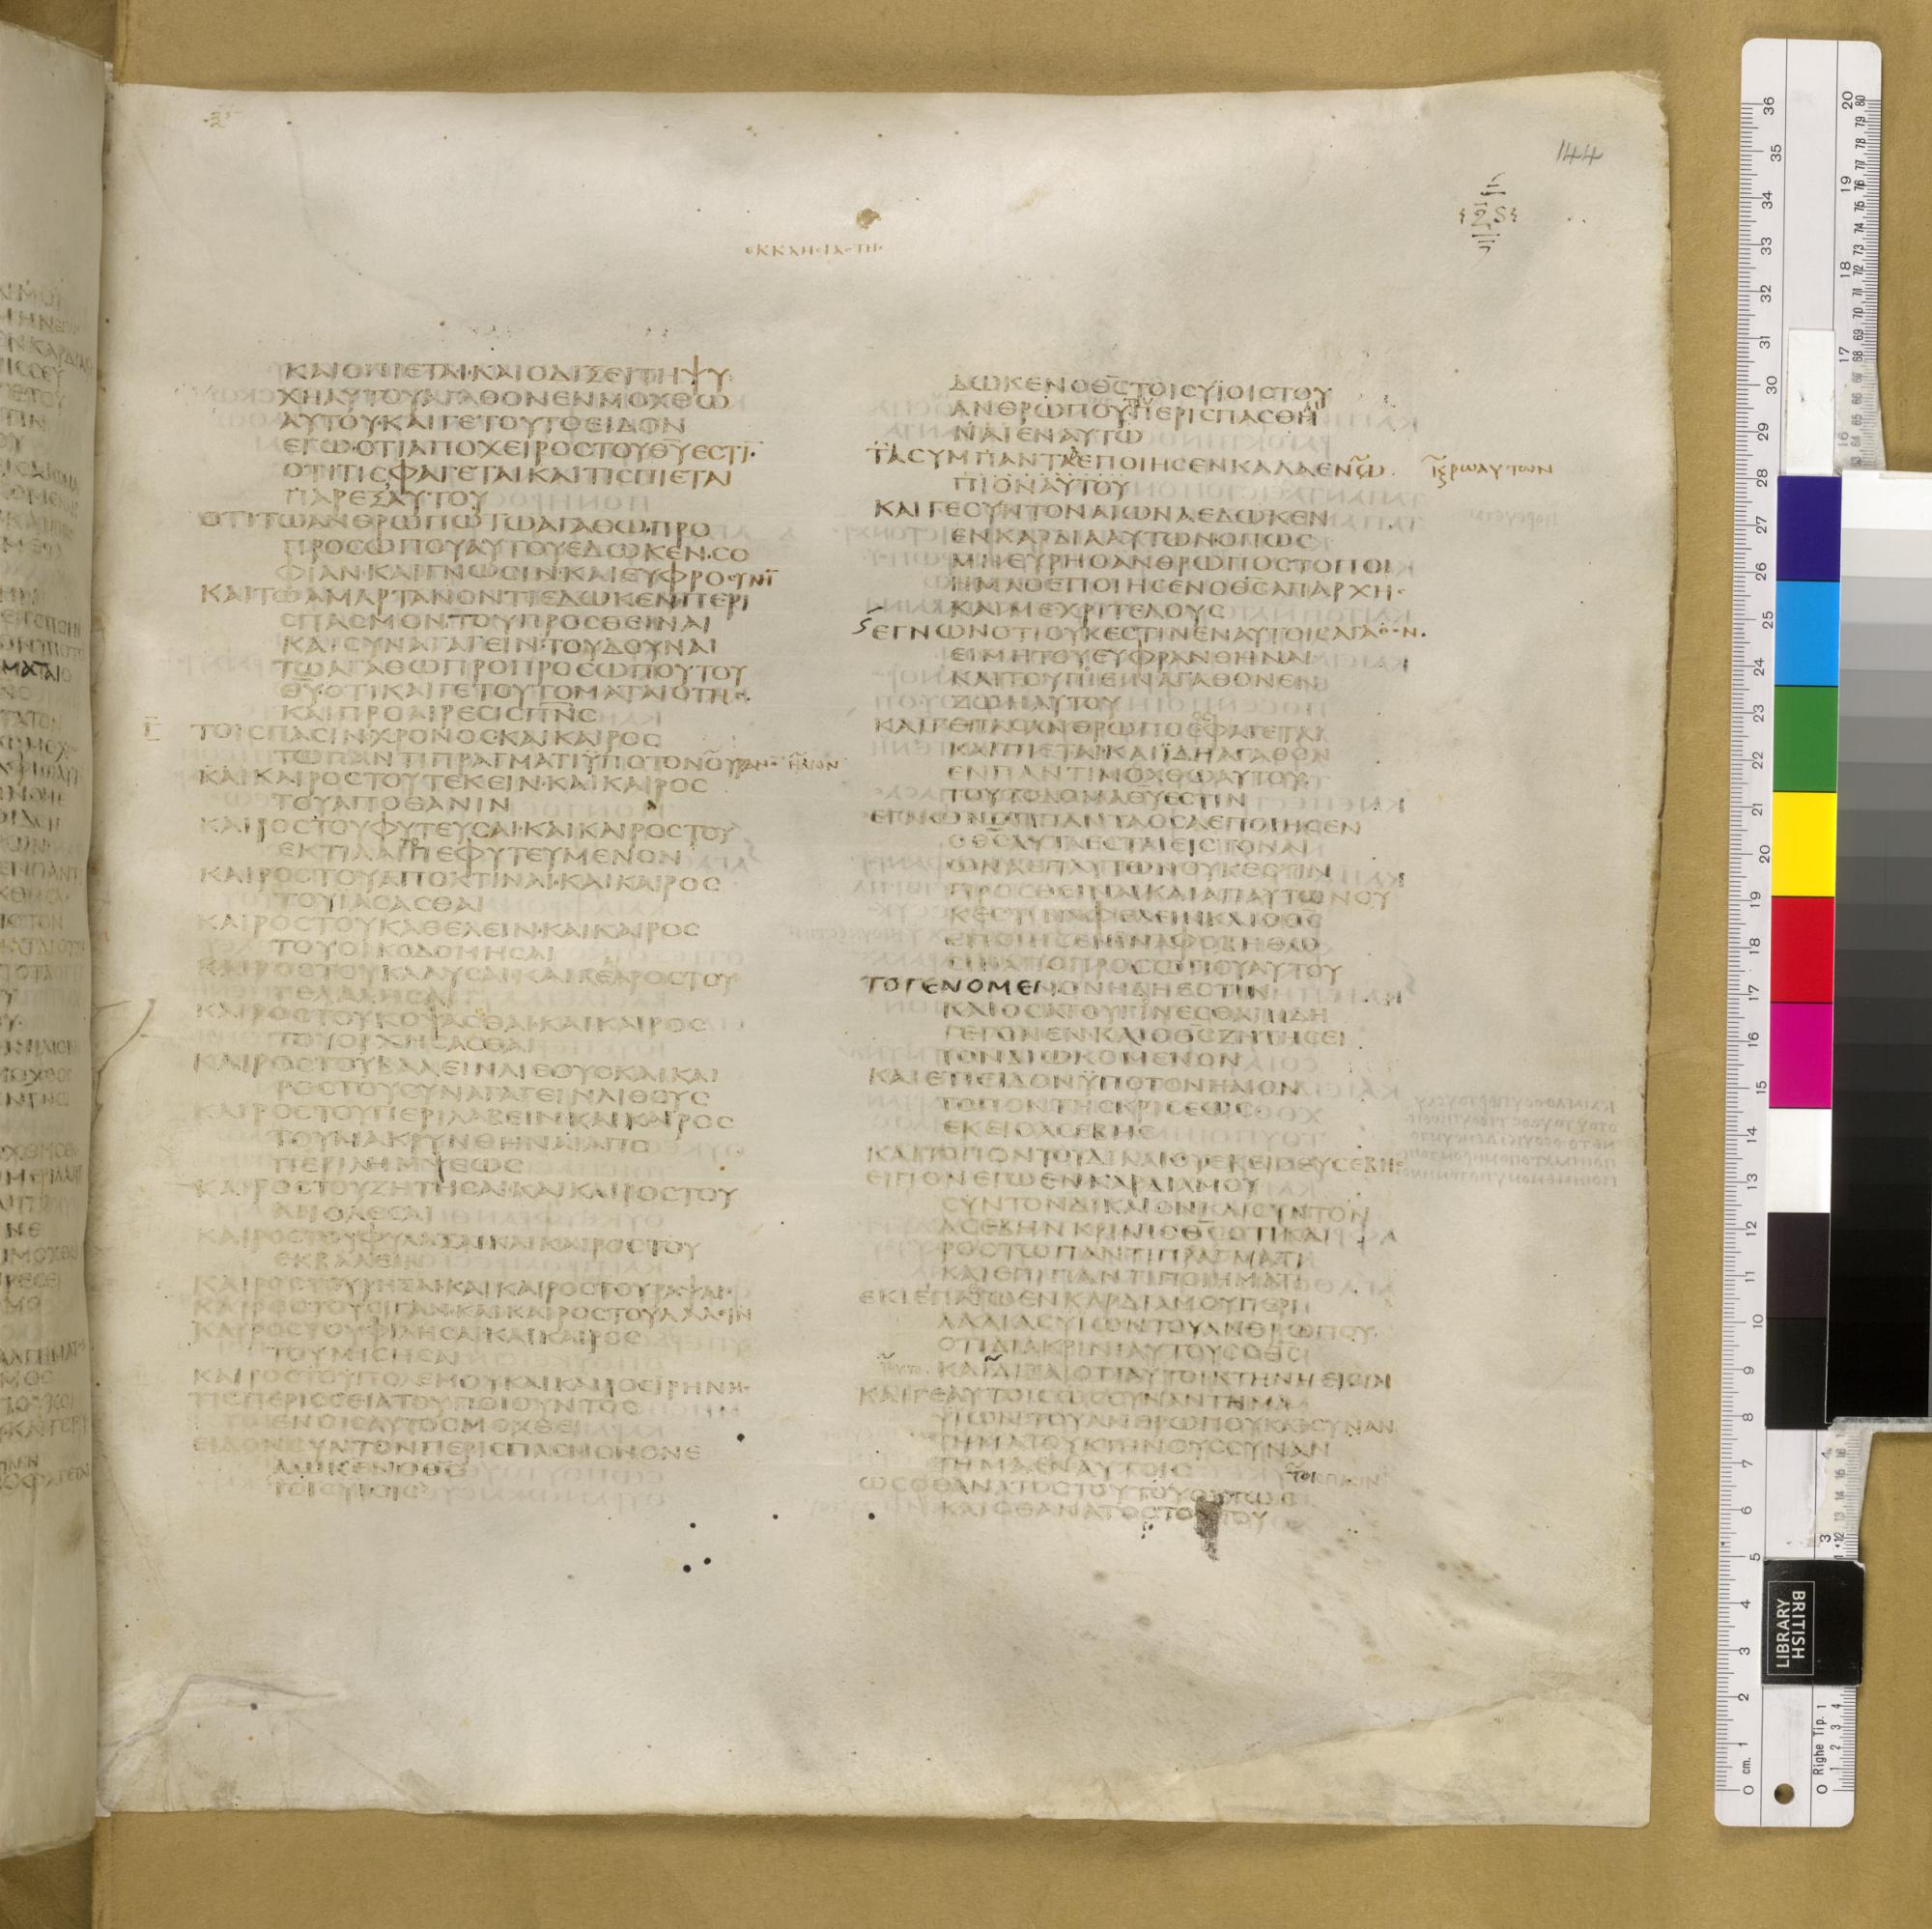 144
ΕΚΚΛΗΣΙΑΣΤΗΣ
ΚΑΙΟΠΙΕΤΑΙ·ΚΑΙΟΔΙΞΕΙΤΗΨΥ
ΧΗΑΥΤΟΥΑΓΑΘΟΝΕΝΜΟΧΘΩ
ΑΥΤΟΥ·ΚΑΙΓΕΤΟΥΤΟΕΙΔΟΝ
ΕΓΩ·ΟΤΙΑΠΟΧΕΙΡΟΣΤΟΥΘΥΕΣΤΙ·
ΟΤΙΤΙΣΦΑΓΕΤΑΙΚΑΙΤΙΣΠΙΕΤΑΙ
ΠΑΡΕΞΑΥΤΟΥ
ΟΤΙΤΩΑΝΘΡΩΠΩΤΩΑΓΑΘΩ·ΠΡΟ
ΠΡΟΣΩΠΟΥΑΥΤΟΥΕΔΩΚΕΝ·ΣΟ
ΦΙΑΝ·ΚΑΙΓΝΩΣΙΝ·ΚΑΙΕΥΦΡΟΣΥΝΗ
ΚΑΙΤΩΑΜΑΡΤΑΝΟΝΤΙΕΔΩΚΕΝΠΕΡΙ
ΣΠΑΣΜΟΝ·ΤΟΥΠΡΟΣΘΕΙΝΑΙ
ΚΑΙΣΥΝΑΓΑΓΕΙΝ·ΤΟΥΔΟΥΝΑΙ
ΤΩΑΓΑΘΩΠΡΟΠΡΟΣΩΠΟΥΤΟΥ
ΘΥ·ΟΤΙΚΑΙΓΕΤΟΥΤΟΜΑΤΑΙΟΤΗΣ
ΚΑΙΠΡΟΑΙΡΕΣΙΣΠΝΣ
ΤΟΙΣΠΑΣΙΝΧΡΟΝΟΣ·ΚΑΙΚΑΙΡΟΣ
ΤΩΠΑΝΤΙΠΡΑΓΜΑΤΙΫΠΟΤΟΝΟΥΡΑΝΟΝ ΗΛΙΟΝ
ΚΑΙΚΑΙΡΟΣΤΟΥΤΕΚΕΙΝ·ΚΑΙΚΑΙΡΟΣ
ΤΟΥΑΠΟΘΑΝΙΝ
ΚΑΙΡΟΣΤΟΥΦΥΤΕΥΣΑΙ·ΚΑΙΚΑΙΡΟΣΤΟΥ
ΕΚΤΙΛΑΙΠΕΦΥΤΕΥΜΕΝΟΝ
ΚΑΙΡΟΣΤΟΥΑΠΟΚΤΙΝΑΙ·ΚΑΙΚΑΙΡΟΣ
ΤΟΥΙΑΣΑΣΘΑΙ
ΚΑΙΡΟΣΤΟΥΚΑΘΕΛΕΙΝ·ΚΑΙΚΑΙΡΟΣ
ΤΟΥΟΙΚΟΔΟΜΗΣΑΙ
ΚΑΙΡΟΣΤΟΥΚΛΑΥΣΑΙ·ΚΑΙΚΕΡΟΣΤΟΥ
ΓΕΛΑΣΑΙ
ΚΑΙΡΟΣΤΟΥΚΟΨΑΣΘΑΙ·ΚΑΙΚΑΙΡΟΣ
ΤΟΥΟΡΧΗΣΑΣΘΑΙ
ΚΑΙΡΟΣΤΟΥΒΑΛΕΙΝΛΙΘΟΥΣΚΑΙΚΑΙ
ΡΟΣΤΟΥΣΥΝΑΓΑΓΕΙΝΛΙΘΟΥΣ
ΚΑΙΡΟΣΤΟΥΠΕΡΙΛΑΒΕΙΝΚΑΙΚΑΙΡΟΣ
ΤΟΥΜΑΚΡΥΝΘΗΝΑΙΑΠΟ
ΠΕΡΙΛΗΜΨΕΩΣ
ΚΑΙΡΟΣΤΟΥΖΗΤΗΣΑΙ·ΚΑΙΚΑΙΡΟΣΤΟΥ
ΑΠΟΛΕΣΑΙ
ΚΑΙΡΟΣΤΟΥΦΥΛΑΞΑΙΚΑΙΚΑΙΡΟΣΤΟΥ
ΕΚΒΑΛΕΙΝ
ΚΑΙΡΟΣΤΟΥΡΗΞΑΙ·ΚΑΙΚΑΙΡΟΣΤΟΥΡΑΨΑΙ·
ΚΑΙΡΟΣΤΟΥΣΙΓΑΝ·ΚΑΙΚΑΙΡΟΣΤΟΥΛΑΛΙΝ
ΚΑΙΡΟΣΤΟΥΦΙΛΗΣΑΙΚΑΙΚΑΙΡΟΣ
ΤΟΥΜΙΣΗΣΑΙ
ΚΑΙΡΟΣΤΟΥΠΟΛΕΜΟΥΚΑΙΚΑΙΡΟΣΙΡΗΝΗΣ
ΤΙΣΠΕΡΙΣΣΕΙΑΤΟΥΠΟΙΟΥΝΤΟΣ
ΕΝΟΙΣΑΥΤΟΣΜΟΧΘΕΙ
ΕΙΔΟΝΣΥΝΤΟΝΠΕΡΙΣΠΑΣΜΟΝΟΝΕ
ΔΩΚΕΝΟΘΣ
ΤΟΙΣΥΙΟΙΣ
ΔΩΚΕΝΟΘΣΤΟΙΣΥΪΟΙΣΤΟΥ
ΑΝΘΡΩΠΟΥΠΕΡΙΣΠΑΣΘΗ
ΝΑΙΕΝΑΥΤΩ
ΤΑΣΥΜΠΑΝΤΑΕΠΟΙΗΣΕΝΚΑΛΑΕΝΩ
ΠΙΟΝΑΥΤΟΥ
ΚΑΙΓΕΣΥΝΤΟΝΑΙΩΝΑΕΔΩΚΕΝ
ΕΝΚΑΡΔΙΑΑΥΤΩΝΟΠΩΣ
ΜΗΕΥΡΗΟΑΝΘΡΩΠΟΣΤΟΠΟΙ
ΗΜΑΟΕΠΟΙΗΣΕΝΟΘΣΑΠΑΡΧΗΣ
ΚΑΙΜΕΧΡΙΤΕΛΟΥΣ
ΕΓΝΩΝΟΤΙΟΥΚΕΣΤΙΝΕΝΑΥΤΟΙΣΑΓΑΘΟΝ·
ΕΙΜΗΤΟΥΕΥΦΡΑΝΘΗΝΑΙ
ΚΑΙΤΟΥΠΙΕΙΝΑΓΑΘΟΝΕΝ
ΖΩΗΑΥΤΟΥ
ΚΑΙΓΕΠΑΣΑΝΘΡΩΠΟΣΦΑΓΕΤΑΙ
ΚΑΙΠΙΕΤΑΙ·ΚΑΙΪΔΗΑΓΑΘΟΝ
ΕΝΠΑΝΤΙΜΟΧΘΩΑΥΤΟΥ
ΤΟΥΤΟΔΟΜΑΘΥΕΣΤΙΝ
ΕΓΝΩΝΟΤΙΠΑΝΤΑΟΣΑΕΠΟΙΗΣΕΝ
ΟΘΣΑΥΤΑΕΣΤΑΙΕΙΣΤΟΝΑΙ
ΩΝΑΕΠΑΥΤΩΝΟΥΚΕΣΤΙΝ
ΠΡΟΣΘΕΙΝΑΙΚΑΙΑΠΑΥΤΩΝΟΥ
ΚΕΣΤΙΝΑΦΕΛΕΙΝΚΑΙΟΘΣ
ΕΠΟΙΗΣΕΝΙΝΑΦΟΒΗΘΩ
ΣΙΝΑΠΟΠΡΟΣΩΠΟΥΑΥΤΟΥ
ΤΟΓΕΝΟΜΕΝΟΝΗΔΗΕΣΤΙΝ
ΚΑΙΟΣΑΤΟΥΓΙΝΕΣΘΑΙΗΔΗ
ΓΕΓΟΝΕΝ·ΚΑΙΟΘΣΖΗΤΗΣΕΙ
ΤΟΝΔΙΩΚΟΜΕΝΟΝ
ΚΑΙΕΤΙΕΙΔΟΝΫΠΟΤΟΝΗΛΙΟΝ
ΤΟΠΟΝΤΗΣΚΡΙΣΕΩΣ
ΕΚΕΙΟΑΣΕΒΗΣ
ΚΑΙΤΟΠΟΝΤΟΥΔΙΚΑΙΟΥΕΚΕΙΟΕΥΣΕΒΗΣ
ΕΙΠΟΝΕΓΩΕΝΚΑΡΔΙΑΜΟΥ
ΣΥΝΤΟΝΔΙΚΑΙΟΝΚΑΙΣΥΝΤΟΝ
ΑΣΕΒΗΝΚΡΙΝΙΟΘΣΟΤΙΚΑΙ
ΡΟΣΤΩΠΑΝΤΙΠΡΑΓΜΑΤΙ
ΚΑΙΕΠΙΠΑΝΤΙΠΟΙΗΜΑΤΙ
ΕΚΙΕΙΠΑΕΓΩΕΝΚΑΡΔΙΑΜΟΥΠΕΡΙ
ΛΑΛΙΑΣΥΙΩΝΤΟΥΑΝΘΡΩΠΟΥ·
ΟΤΙΔΙΑΚΡΙΝΙΑΥΤΟΥΣΟΘΣ
ΚΑΙΔΙΞΑΙΟΤΙΑΥΤΟΙΚΤΗΝΗΕΙΣΙΝ
ΚΑΙΓΕΑΥΤΟΙΣΩΣΣΥΝΑΝΤΗΜΑ
ΥΙΩΝΤΟΥΑΝΘΡΩΠΟΥΚΑΙΣΥΝΑΝ
ΤΗΜΑΤΟΥΚΤΗΝΟΥΣΣΥΝΑΝ
ΤΗΜΑΕΝΑΥΤΟΙΣ
ΩΣΟΘΑΝΑΤΟΣΤΟΥΤΟΥΟΥΤΩΣ
ΚΑΙΟΘΑΝΑΤΟΣΤΟΥΤΟΥ
BRITISH
LIBRARY